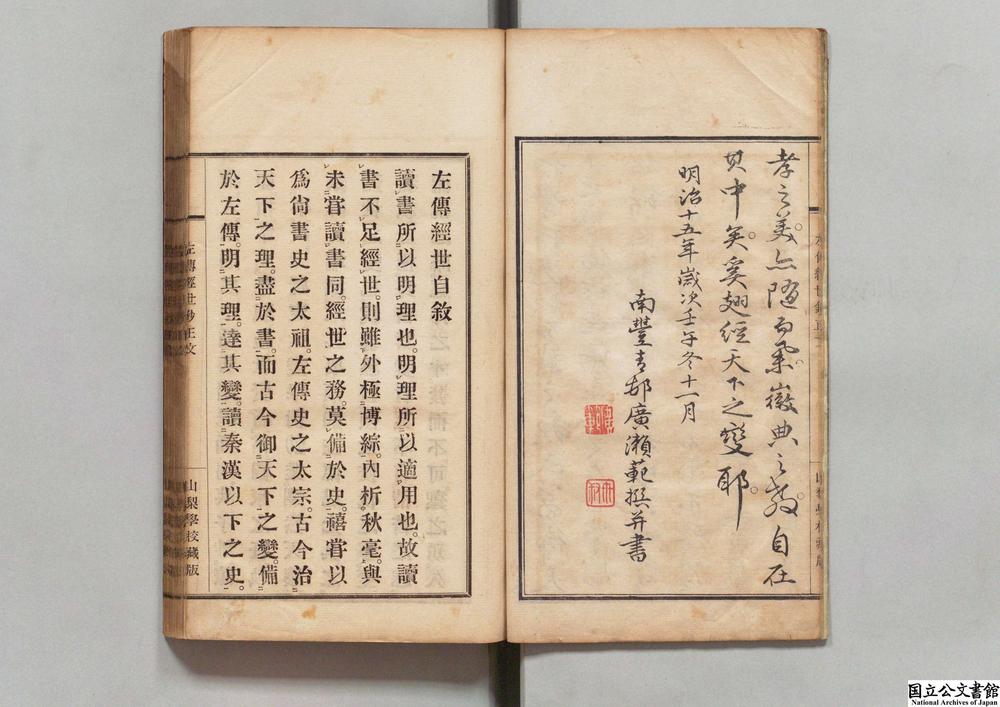 孝之美。亦隨而乘。徽典之教。自在
其中矣。奚翅經天下之變耶。
明治十五年歲次壬午冬十一月
南豐青邨廣瀨範撰并書
左傳經世自敘
讀書所以明理也。明理所以適用也。故讀
書不足經世。則雖外極博綜。內析秋毫。與
未甞讀書同。經世之務。莫備於史。禧甞以
爲尙書史之太祖。左傳史之太宗。古今治
天下之理。盡於書。而古今御天下之變。備
於左傳。明其理。達其變。讀秦漢以下之史。
左傳經世鈔正文
山梨學校藏版
国立公文書館
National Archives of Japan